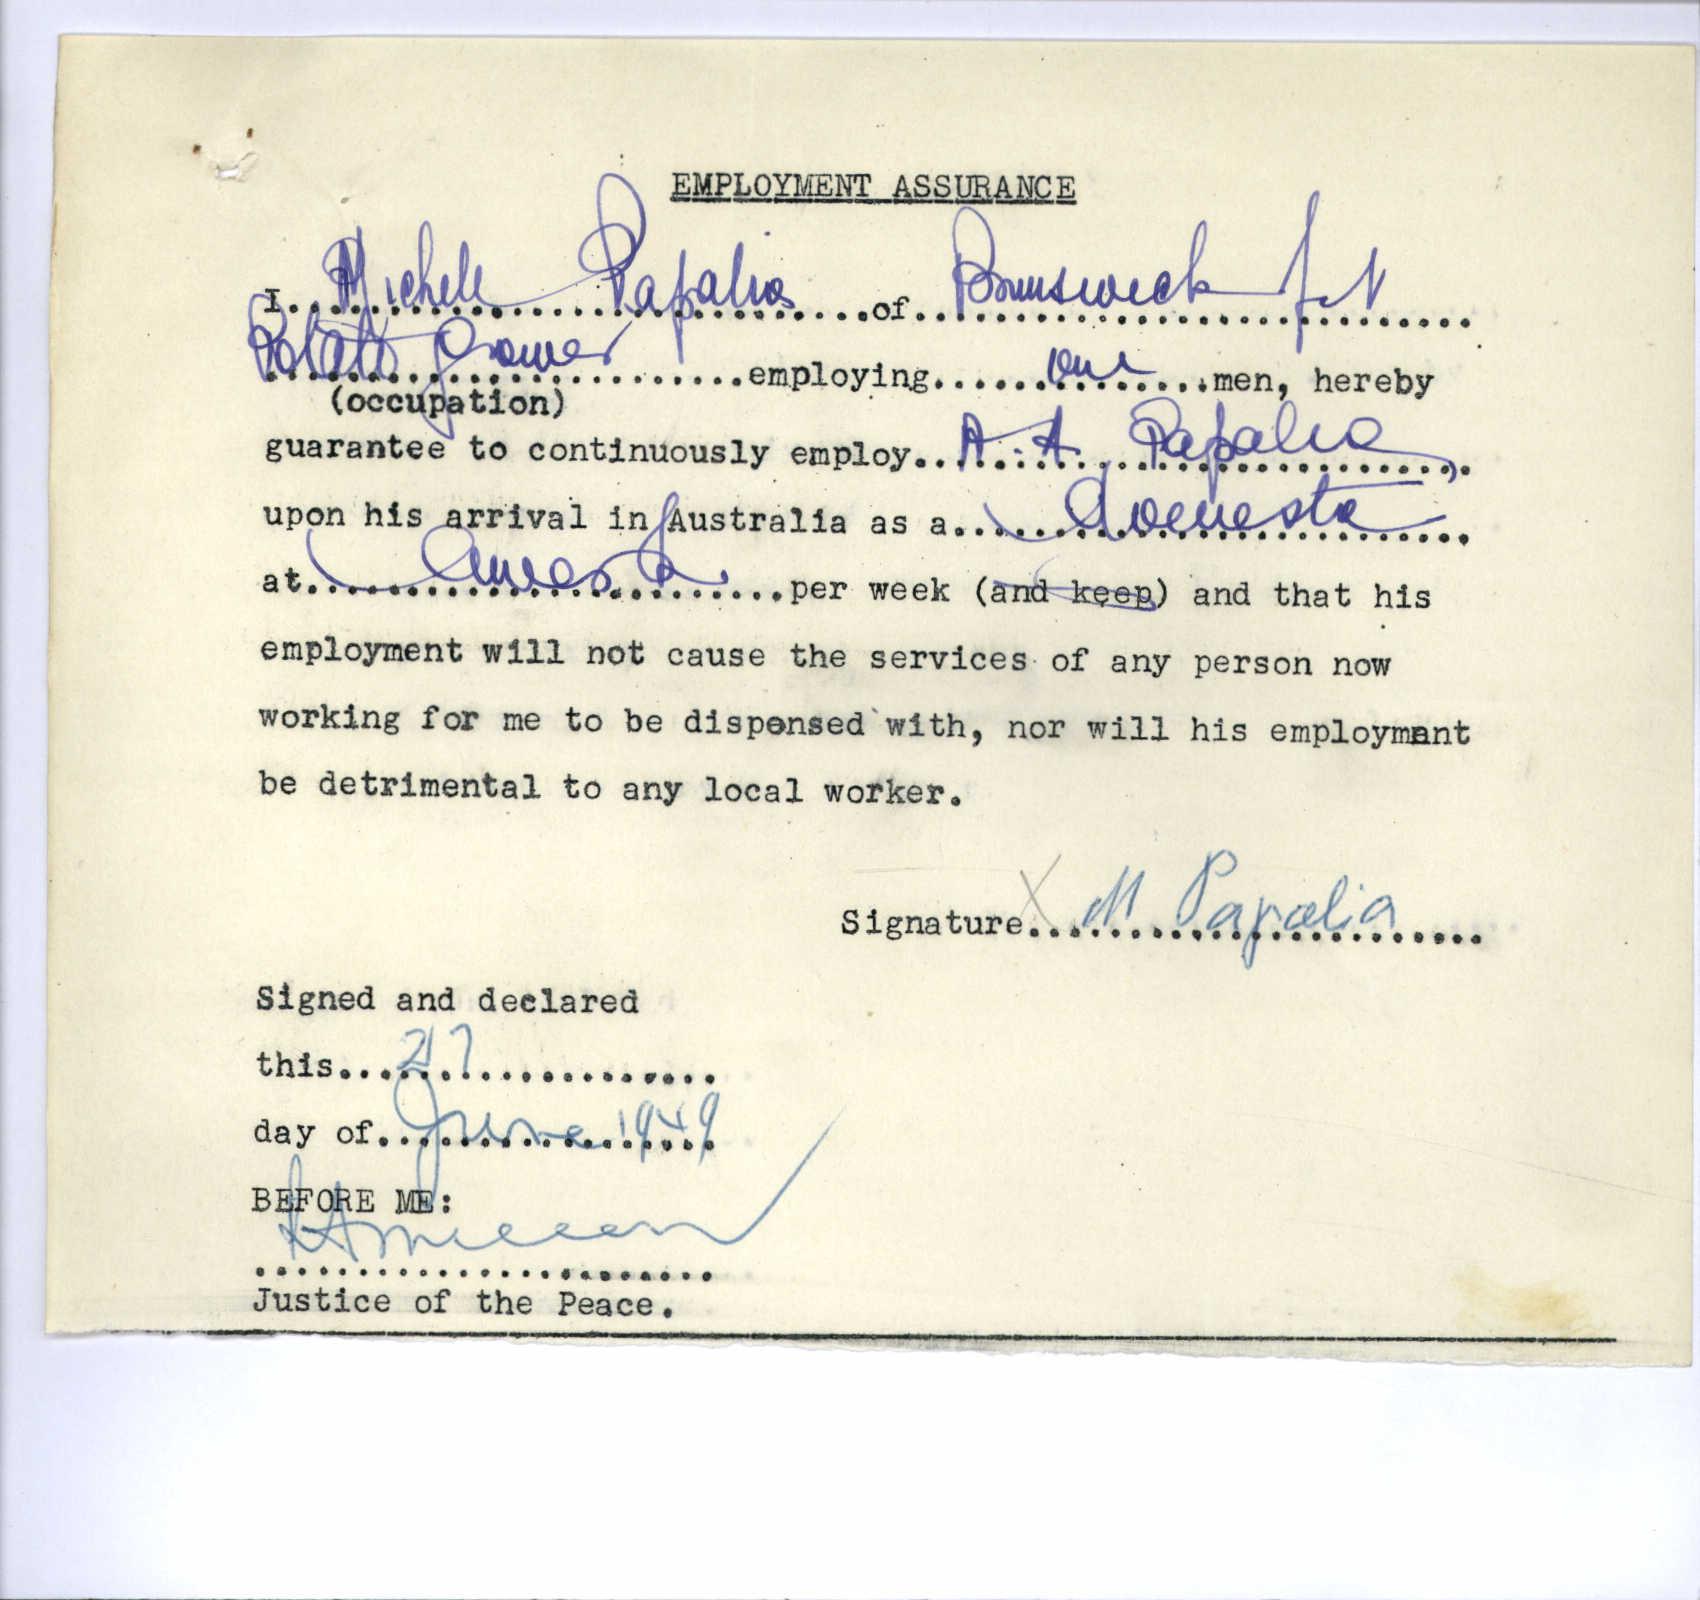 EMPLOYMENT ASSURANCE
I Michele Papalia of Brunswick Jct
Potato Grower employing one men, hereby
(occupation)
guarantee to continuously employ A. A. Papalia
upon his arrival in Australia as a Domestic
at per week (and keep) and that his
employment will not cause the services of any person now
working for me to be dispensed with, nor will his employment
be detrimental to any local worker.
Signature X M Papalia
Signed and declared
this 27
day of June 1949
BEFORE ME:
Justice of the Peace.